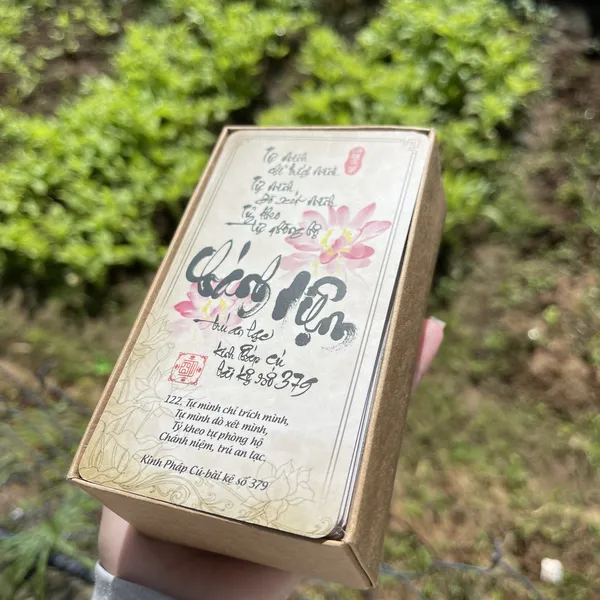 Tự mình
chỉ trích mình
Tự mình
dò xét mình
Tỳ kheo
tự phòng hộ
Chánh Niệm
trú an lạc
kinh Pháp cú
bài kệ số 379
122. Tự mình chỉ trích mình,
Tự mình dò xét mình,
Tỳ kheo tự phòng hộ
Chánh niệm, trú an lạc.
Kinh Pháp Cú-bài kệ số 379